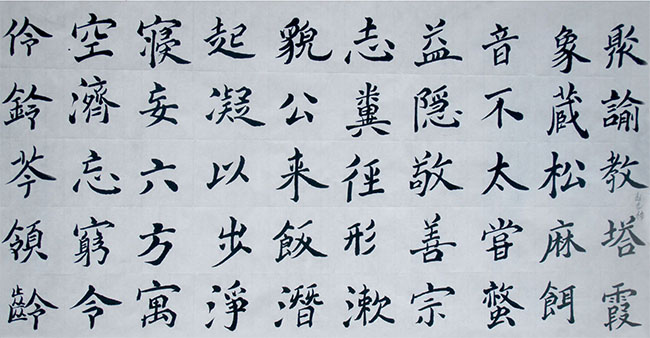 聚諭教塔霞
象蔵松麻餌
音不太嘗螫
益隠敬善宗
志糞径形漱
貌公来飯潛
起凝以出淨
寢妄六方寓
空濟忘窮令
伶鈴芩領齡